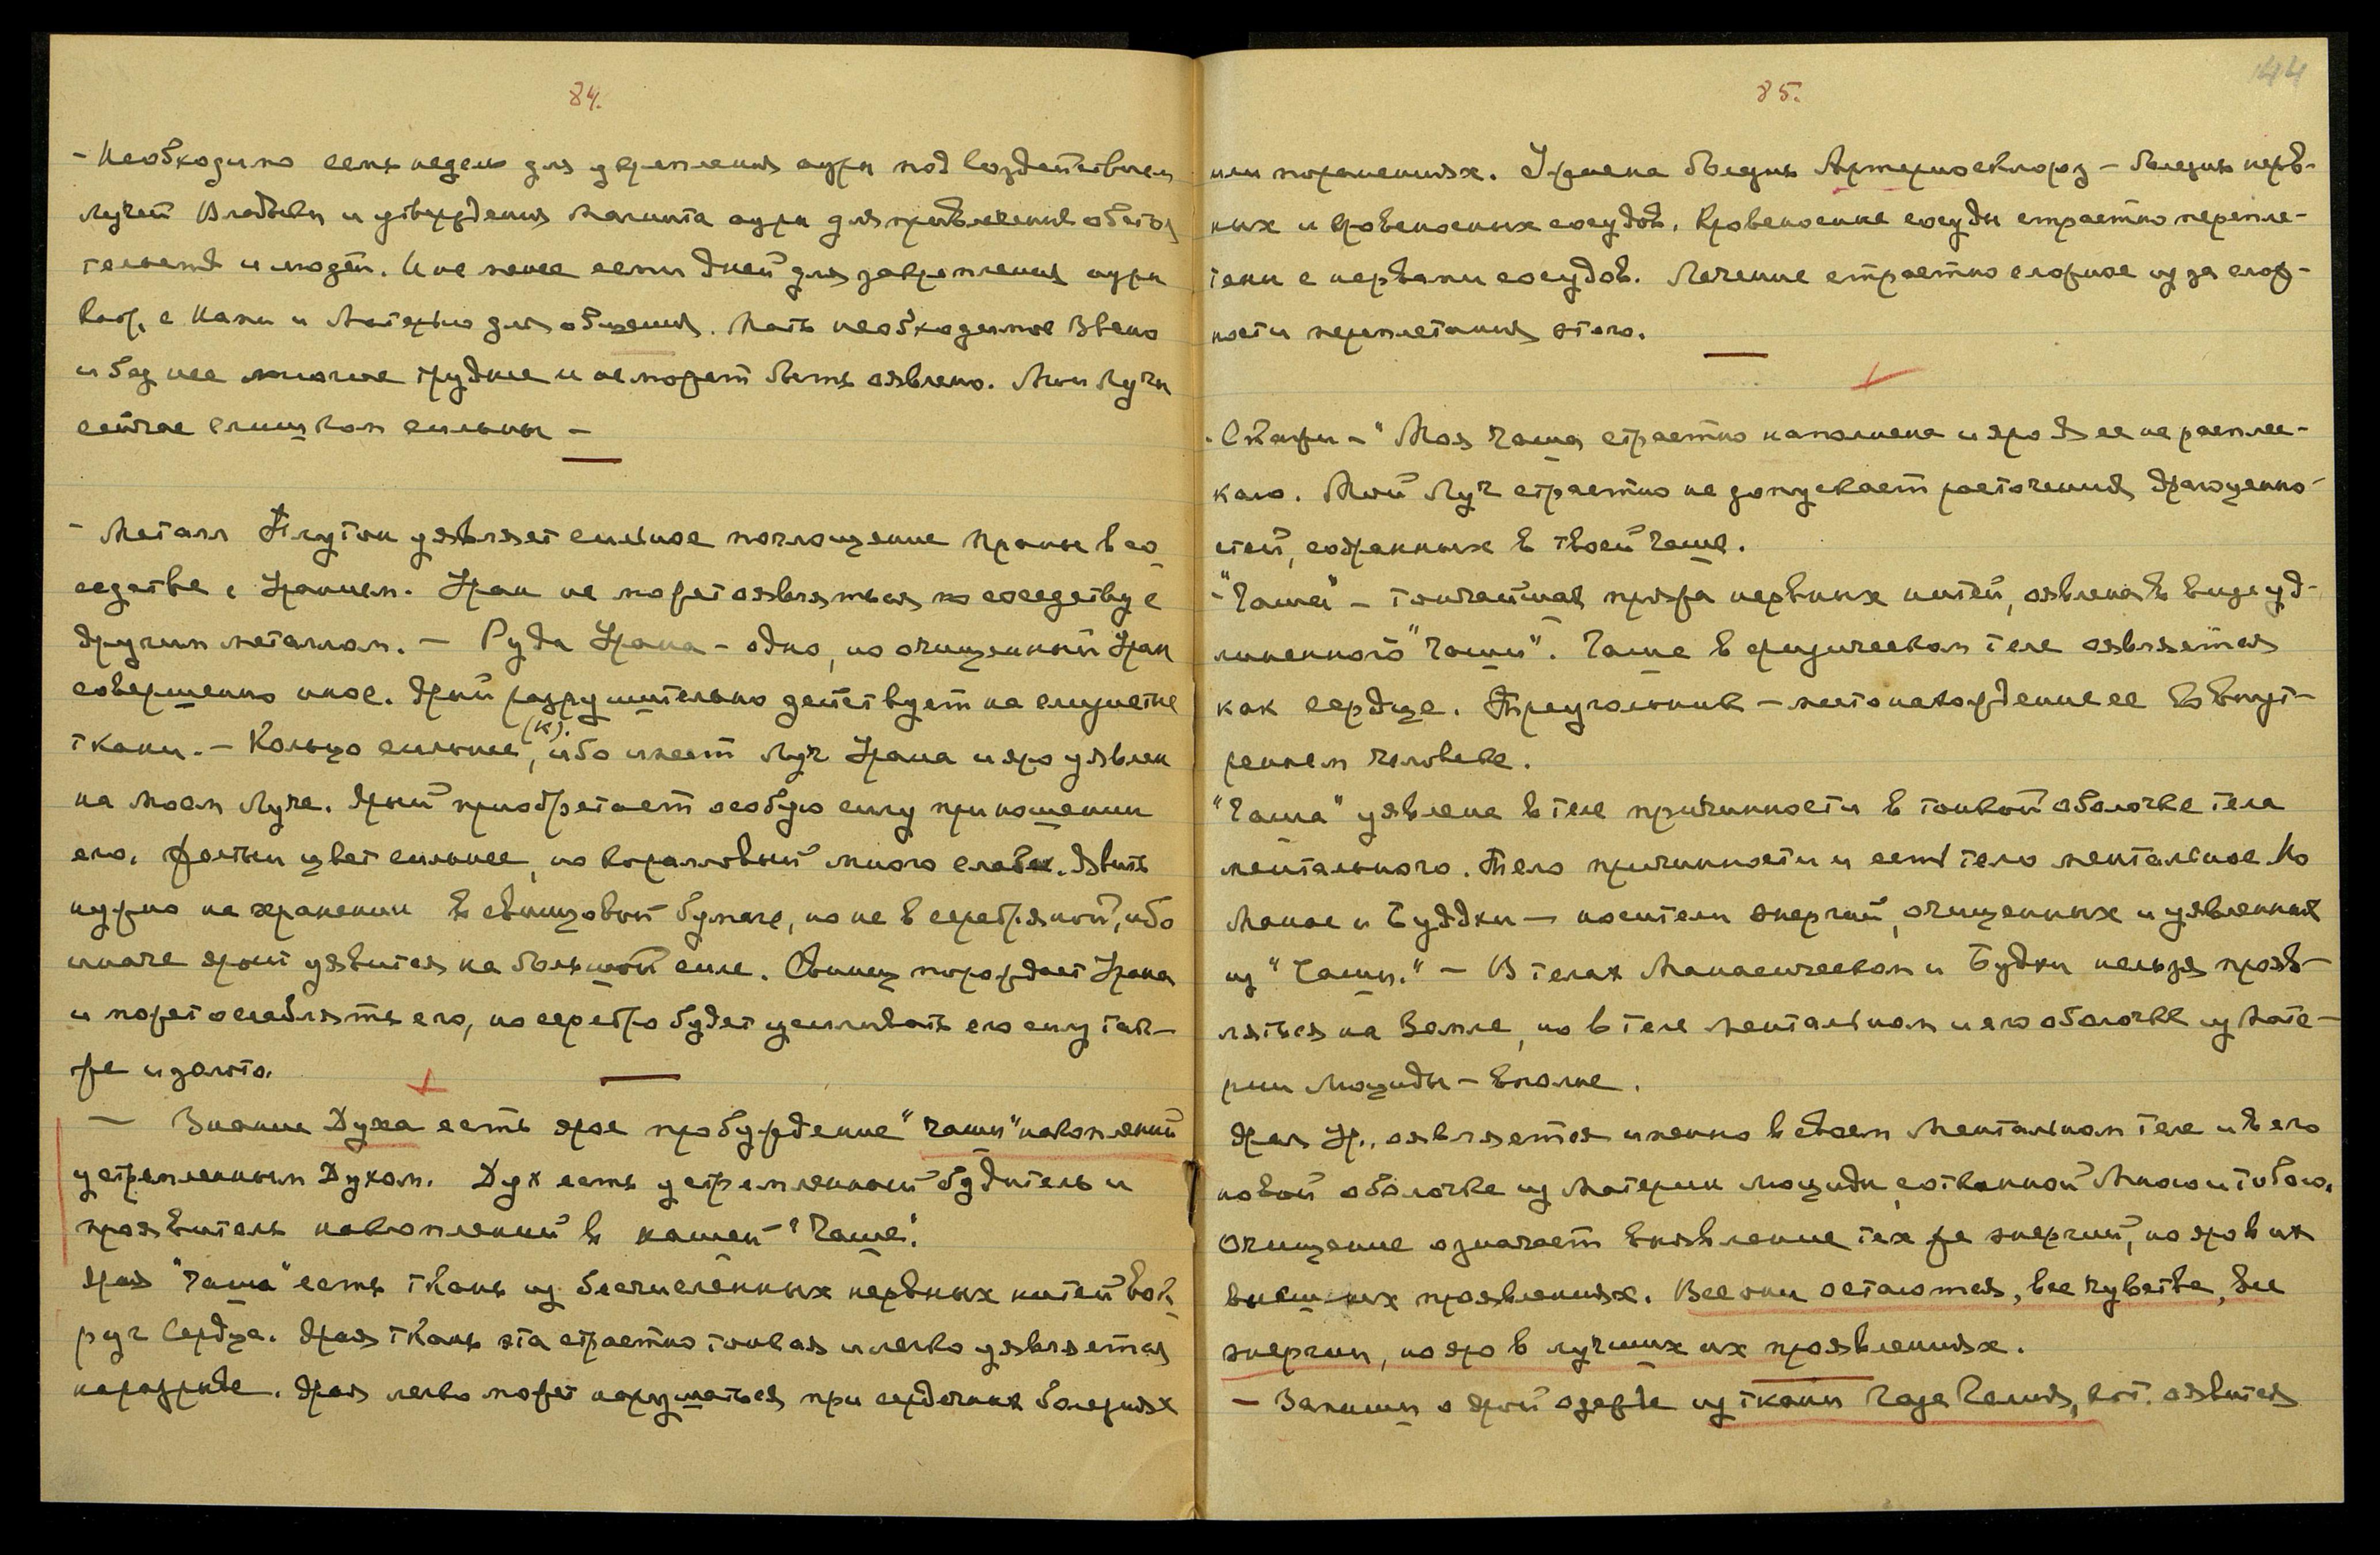 84.
- Необходимо семь недель для укрепления ауры под воздействием
Лучей Владыки и утверждения Магнита ауры для привлечения обстоя
тельств и людей. И не менее семи дней для закрепления ауры
кажд. с Нами и Матерью для общения. Мать необходимое Звено
и без нее многое труднее и не может быть явлено. Мои Лучи
сейчас слишком сильны –
- Металл Плутон уявляет сильное поглощение Праны в со
седстве с Ураном. Уран не может оявляться по соседству с
другим металлом. – Руда Урана – одно, но очищенный Уран
совершенно иное. Ярый разрушительно действует на слизистые
(к).
ткани. – Кольцо сильнее, ибо имеет Луч Урана и яро уявлен
на моем Луче. Ярый приобретает особую силу при ношении
его. Желтый цвет сильнее, но коралловый много слабее. Явить
нужно на хранении в свинцовой бумаге, но не в серебряной, ибо
иначе яро уявится на большой силе. Свинец порождает Урана
и может ослаблять его, но серебро будет усиливать его силу так-
же и золото.
– Знание Духа есть ярое пробуждение "Чаши" накоплений
устремленным Духом. Дух есть устремленный будитель и
проявитель накоплений в нашей "Чаше".
Ярая "Чаша" есть ткань из бесчисленных нервных нитей вок
руг Сердца. Ярая ткань эта страстно тонкая и легко уявляется
на разрыве. Ярая легко может нарушаться при сердечных болезнях
85.
144
или поражениях. Уявлена болезнь Артериосклороз – болезнь нерв-
ных и кровеносных сосудов. Кровеносные сосуды страстно перепле-
тены с нервами сосудов. Лечение страстно сложное из за слож-
ности переплетания этого.
- Скажи – "Моя Чаша страстно наполнена и яро Я ее не расплес-
каю. Мой Луч страстно не допускает расточения драгоценно-
стей, собранных в твоей Чаше.
- "Чаша" – тончайшая пряжа нервных нитей, явленная в виде уд-
линенного "Чаши". Чаша в физическом теле оявляется
как сердце. Треугольник – местонахождение ее во внут-
реннем человеке.
"Чаша" уявлена в теле причинности в тонкой оболочке тела
ментального. Тело причинности и есть тело ментальное. Но
Манас и Буддхи – носители энергий, очищенных и уявленных
из "Чаши." – В телах Манасическом и Будхи нельзя прояв-
ляться на Земле, но в теле ментальном и его оболочке из Мате-
рии Люциды – вполне.
Ярая Ур., оявляется именно в своем Ментальном теле и в его
новой оболочке из Материи люциды, сотканной Мною и тобою.
Очищение означает выявление тех же энергий, но яро в их
высших проявлениях. Все они остаются, все чувства, все
энергии, но яро в лучших их проявлениях.
– Запиши о ярой одежде из ткани Газа Камня, кот. оявится